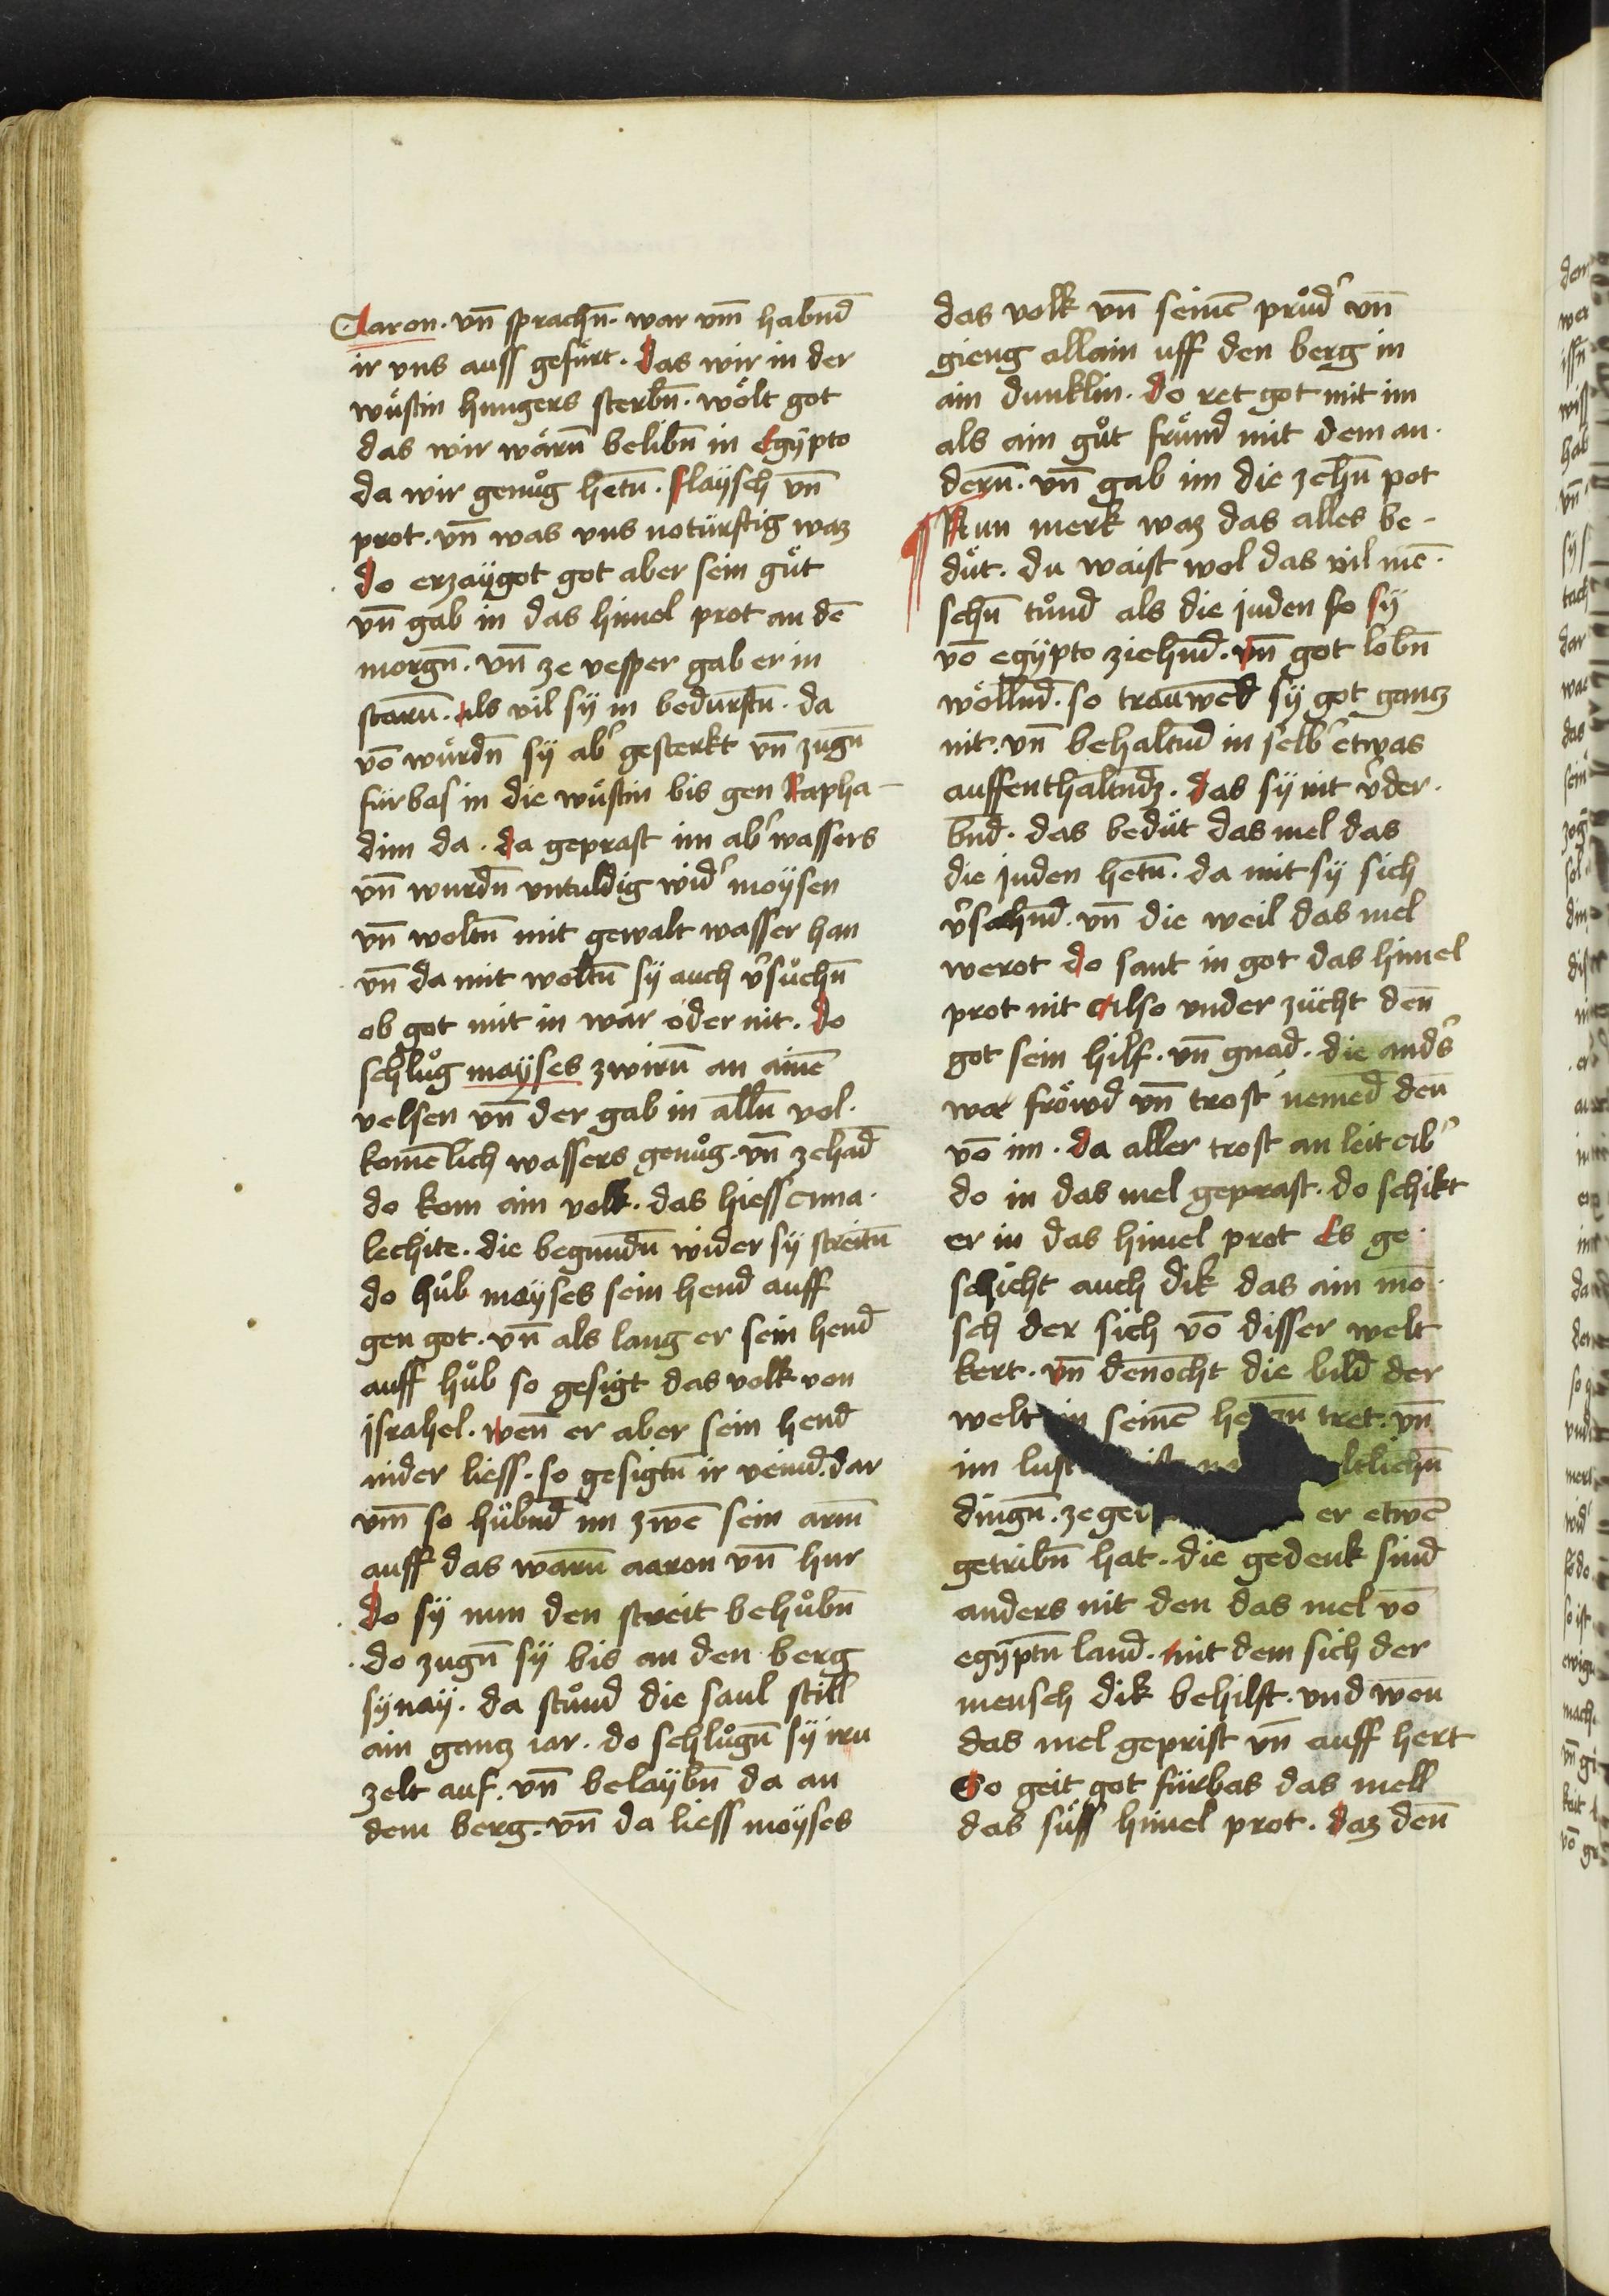 Aaron. vn̄ sprachn̄. war vm̄ habnd̄
ir vns auss gefürt. Das wir in der
wüstin hungers sterbn̄. wölt got
das wir wärn̄ belibn̄ in Egÿpto
da wir genůg hetn̄. flaÿsch vn̄
prot. vn̄ was vns notürftig waz
do erzaÿgot got aber sein güt
vn̄ gab in das himel prot an dē
morgn̄. vn̄ ze vesper gab er in
starn̄. als vil sÿ in bedürftn̄. da
vō würdn̄ sÿ ab' gesterkt vn̄ zugn̄
fürbas in die wüstin bis gen Rapha-
dim da. da geprast im ab' wassers
vn̄ wurdn̄ vntuldig wid' moÿsen
vn̄ woltn̄ mit gewalt wasser han
vn̄ da mit woltn̄ sÿ auch v'sůchn̄
ob got mit in wär oder nit. do
schlůg maÿses zwirn̄ an ainē
velsen vn̄ der gab in alln̄ vol-
komēlich wassers genůg. vn̄ zehād
do kom ain volk. das hiess Ama-
lechite. die begundn̄ wider sÿ streitn̄
do hůb moÿses sein hend auff
gen got. vn̄ als lang er sein hend
auff hůb so gesigt das volk von
jsrahel. wen̄ er aber sein hend
nider liess. so gesigtn̄ ir veind. dar
vm̄ so hübnd̄ im zwē sein arm̄
auff das warn̄ aaron vn̄ hur
do sÿ nun den streit behůbn̄
do zugn̄ sÿ bis an den berg
sÿnaÿ. da stůnd die saul still
ain gancz iar. do schlůgn̄ sÿ irn
zelt auf. vn̄ belaÿbn̄ da an
dem berg. vn̄ da liess moÿses
das volk vn̄ seinē průd' vn̄
gieng allain uff den berg in
ain dunklin. do ret got mit im
als ain gůt fründ mit dem an-
dern̄. vn̄ gab im die zehn̄ pot
Nun merk waz das alles be-
düt. du waist wol das vil mē-
schn̄ tůnd als die juden so sÿ
vō egÿpto ziehnd̄. vn̄ got lobn̄
wöllnd̄. so trauwed sÿ got gancz
nit. vn̄ behaltnd̄ in selb' etwas
auffenthaltndz. das sÿ nit v'der-
bnd̄. das bedüt das mel das
die juden hetn̄. da mit sÿ sich
v'sahnd̄. vn̄ die weil das mel
werot do sant in got das himel
prot nit Also vnder zücht den̄
got sein hilf. vn̄ gnad. die and's
war fröwd vn̄ trost nemed den̄
vō im. da aller trost an leit Ab'
do in das mel geprast. do schikt
er in das himel prot Es ge-
schicht auch dik das ain mē-
sch der sich vō disser welt
kert. vn̄ denocht die bild der
welt in seinē tret. vn̄
im lust
dingn̄. er etwē
getribn̄ hat. die gedenk sind
anders nit den das mel vō
egÿptn̄ land. mit dem sich der
mensch dik behilft. vnd wen̄
das mel geprist vn̄ auff hert
So geit got fürbas das mell
das süss himel prot. daz den̄